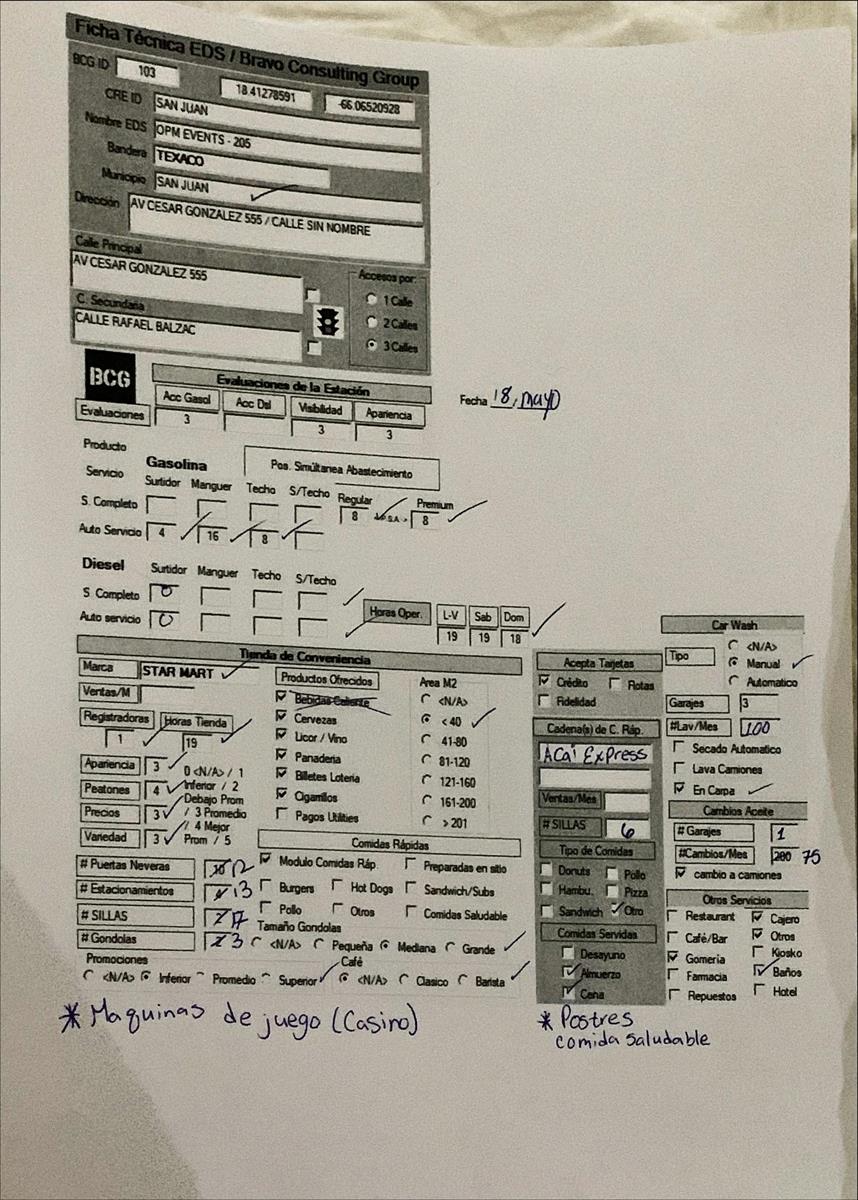 Ficha Técnica EDS / Bravo Consulting Group
BCG ID 103 18.41278591 -66.06520928
CRE ID SAN JUAN
Nombre EDS OPM EVENTS - 205
Bandera TEXACO
Municipio SAN JUAN
Dirección AV CESAR GONZALEZ 555 / CALLE SIN NOMBRE
Calle Principal
AV CESAR GONZALEZ 555
C. Secundaria
CALLE RAFAEL BALZAC
Accesos por:
1 Calle
2 Calles
3 Calles
BCG
Evaluaciones de la Estación
Evaluaciones
Acc Gasol Acc Dsl Visibilidad Apariencia
3 3 3
Fecha 18, mayo
Producto
Servicio
Gasolina
Pos. Simúltanea Abastecimiento
Surtidor Manguer Techo S/Techo Regular Premium
S. Completo 8 8
Auto Servicio 4 16 8
Diesel
Surtidor Manguer Techo S/Techo
S. Completo 0
Auto servicio 0
Horas Oper. L-V Sab Dom
19 19 18
Tienda de Conveniencia
Marca STAR MART
Ventas/M
Registradoras Horas Tienda
1 19
Apariencia 3
Peatones 4
Precios 3
Variedad 3
0 <N/A> / 1
Inferior / 2
Debajo Prom
/ 3 Promedio
/ 4 Mejor
Prom / 5
Productos Ofrecidos
Bebidas Caliente
Cervezas
Licor / Vino
Panaderia
Billetes Loteria
Cigarrillos
Pagos Utilities
Area M2
<N/A>
< 40
41-80
81-120
121-160
161-200
> 201
# Puertas Neveras 12
# Estacionamientos 13
# SILLAS 17
# Gondolas 3
Comidas Rápidas
Modulo Comidas Ráp Preparadas en sitio
Burgers Hot Dogs Sandwich/Subs
Pollo Otros Comidas Saludable
Tamaño Gondolas
<N/A> Pequeña Mediana Grande
Promociones
<N/A> Inferior Promedio Superior
Café
<N/A> Clasico Barista
Acepta Tarjetas
Crédito Flotas
Fidelidad
Cadena(s) de C. Ráp.
Acai Express
Ventas/Mes
# SILLAS 6
Tipo de Comidas
Donuts Pollo
Hambu. Pizza
Sandwich Otro
Comidas Servidas
Desayuno
Almuerzo
Cena
Car Wash
Tipo
<N/A>
Manual
Automatico
Garajes 3
#Lav/Mes 100
Secado Automatico
Lava Camiones
En Carpa
Cambios Aceite
# Garajes 1
#Cambios/Mes 200 75
cambio a camiones
Otros Servicios
Restaurant Cajero
Café/Bar Otros
Gomeria Kiosko
Farmacia Baños
Repuestos Hotel
* Maquinas de juego (Casino)
* Postres
comida saludable